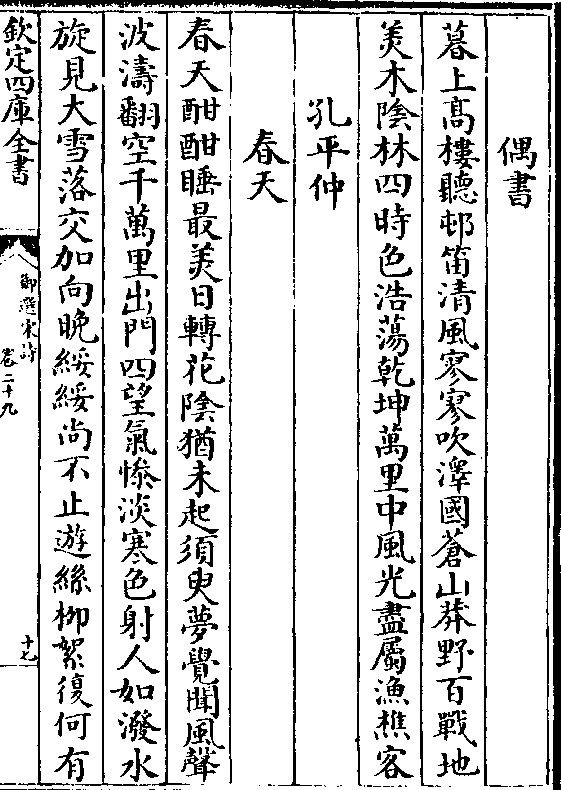 偶書
暮上髙樓聽邨笛清風寥寥吹澤國蒼山莽野百戰地
美木陰林四時色浩蕩乾坤萬里中風光盡屬漁樵客
孔平仲
春天
春天酣酣睡最美日轉花陰猶未起須臾夢覺聞風聲
波濤翻空千萬里出門四望氣慘淡寒色射人如潑水
旋見大雪落交加向晚綏綏尚不止遊絲柳絮復何有
欽定四庫全書
御選宋詩
卷二十九
十七